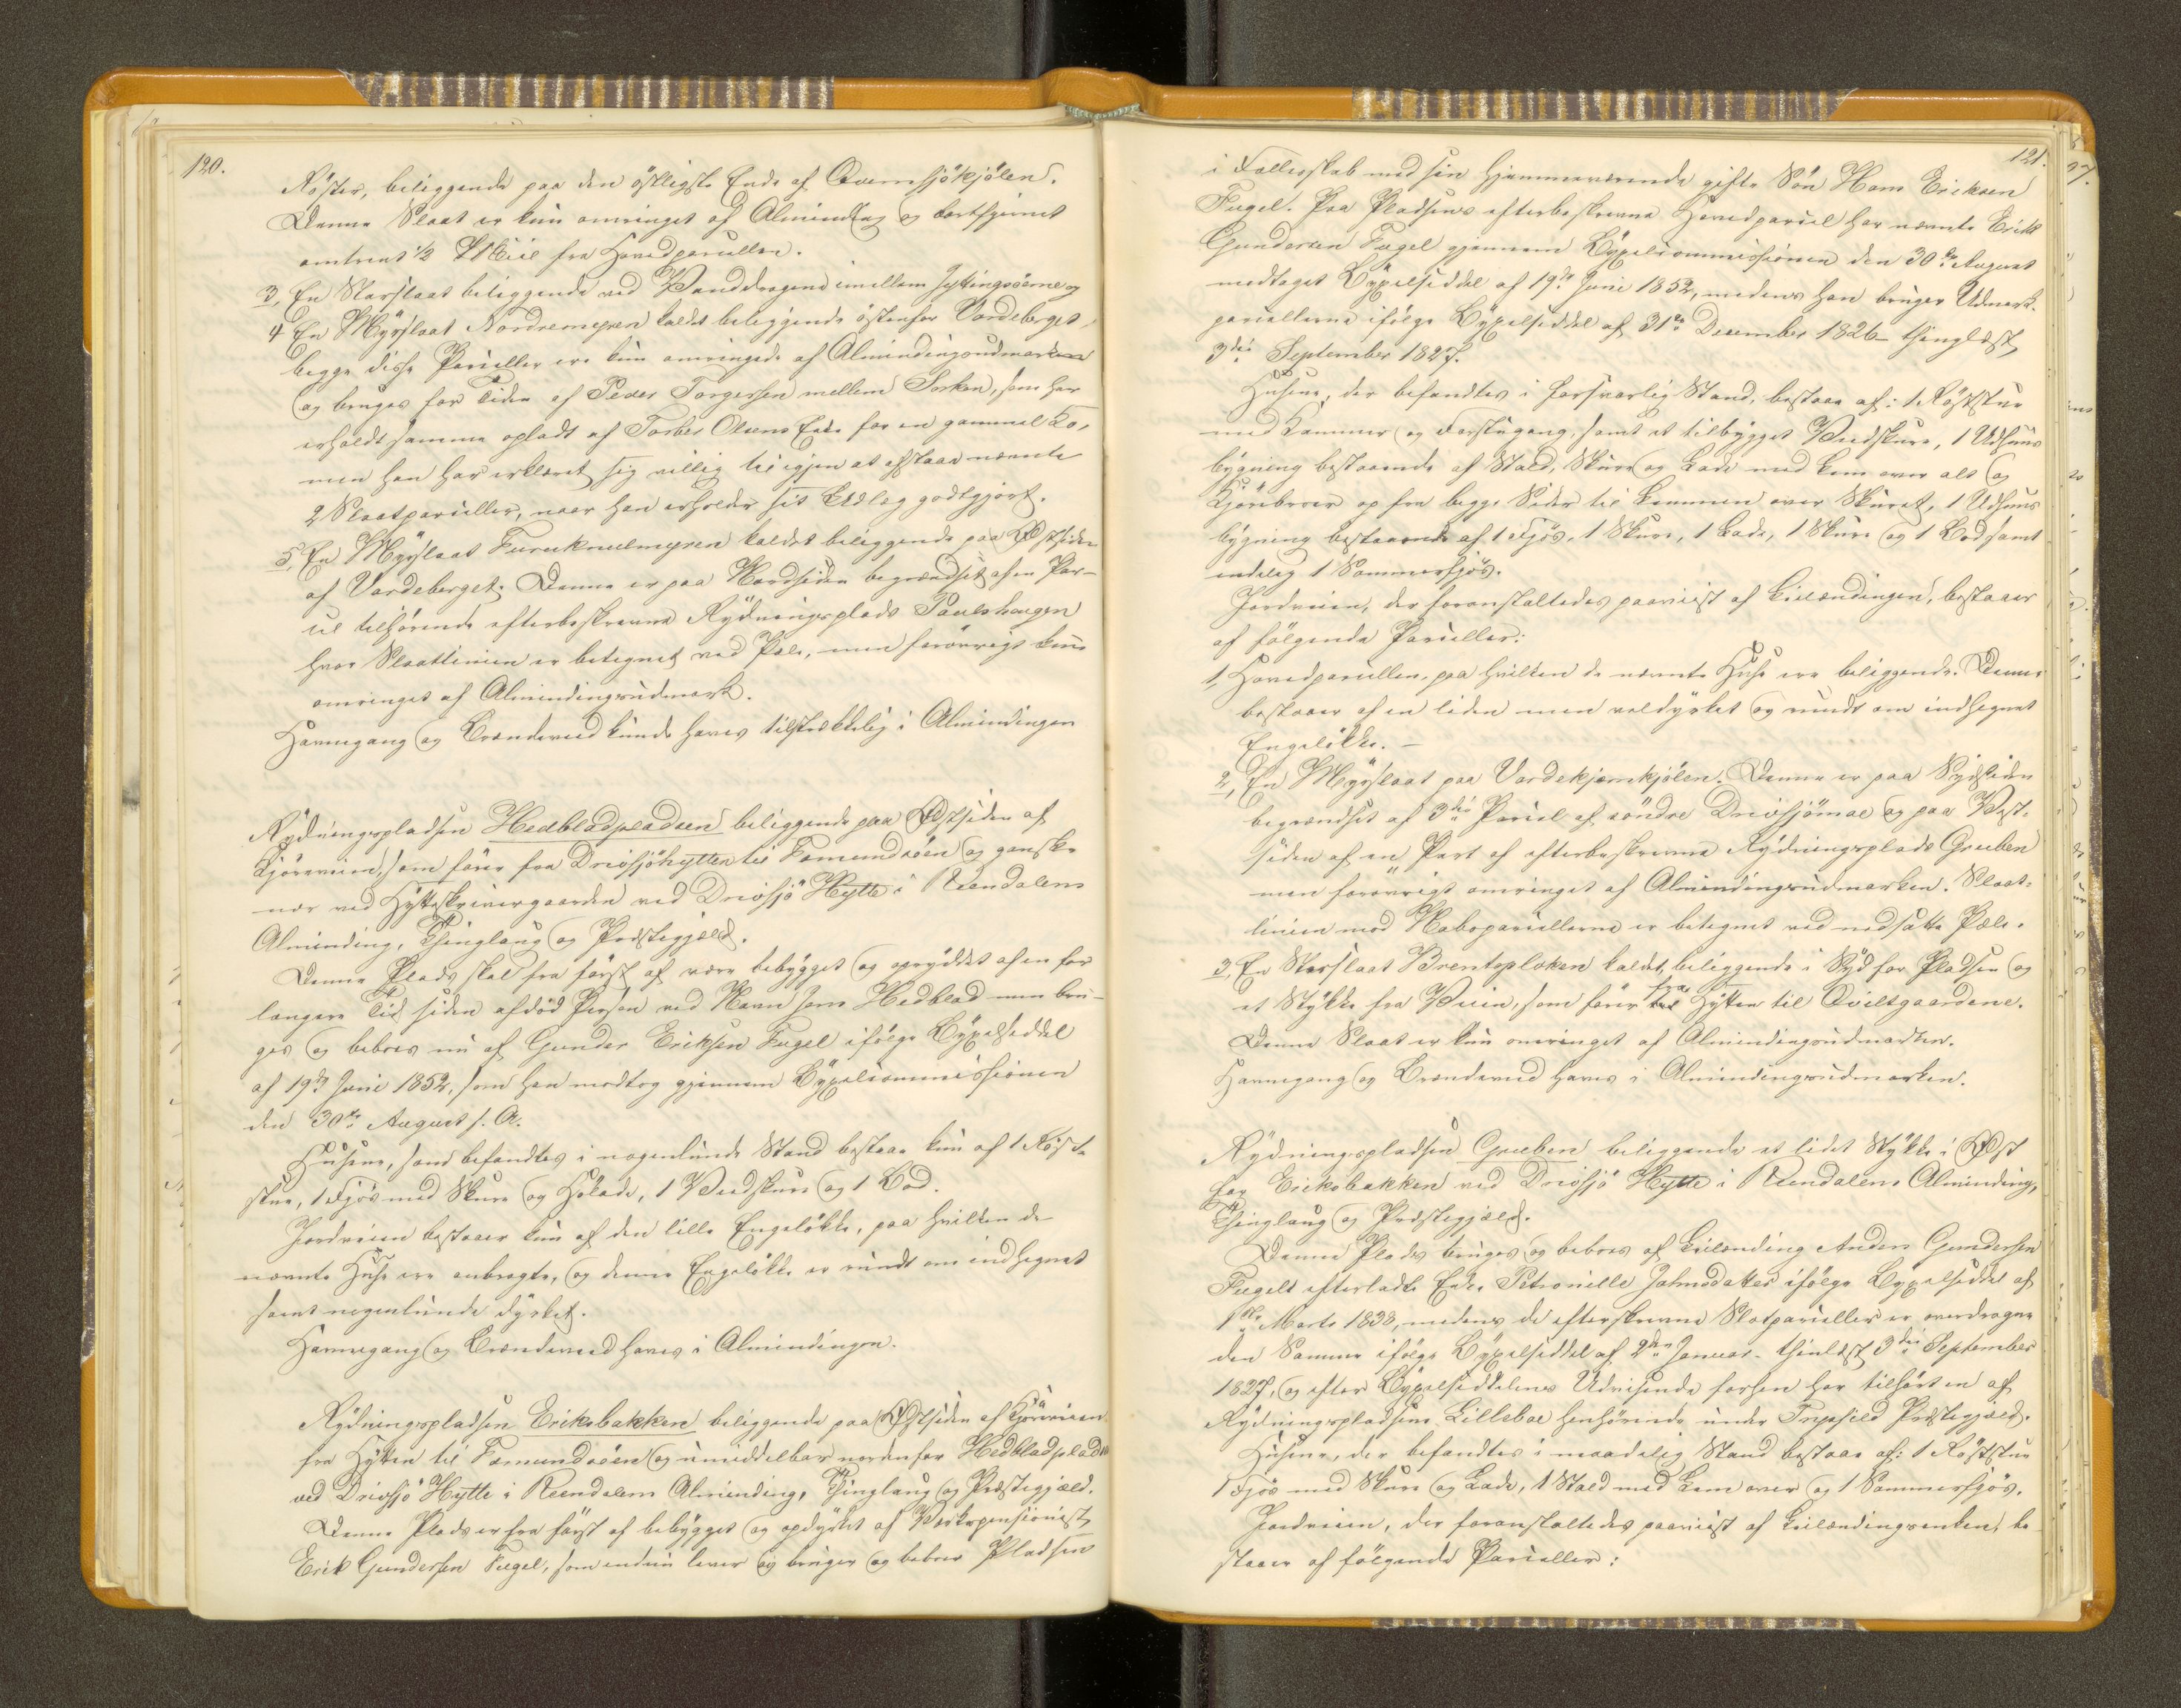 120.
Röster, beliggende paa den östligste Ende af Qvernsjökjölen.
Denne Slaat er kun omringet af Alminding og bortfjernet
omtrent 1/2 Miil fra Hovedparcellen.
3, En Starslaat beliggende ved Vanddragene imellem og
4 En Myrslaat Nordremyren kaldet beliggende östenfor Vardeberget,
begge disse Parceller ere kun omringede af Almindingsudmarken
og bruges for Tiden af Peder Torgersen mellem Sorken, som har
erholdt samme opladt af Torber Olsens Enke for en gammel Ko,
men han har erklæret sig villig til igjen at afstaae nævnte
2 Slaatparceller, naar han erholder sit Udlæg godtgjort.
5, En Myrslaat Furuknulmyren kaldet beliggende paa Østsiden
af Vardeberget. Denne er paa Nordsiden begrændset af en Par-
cel tilhørende efterbeskrevne Rydningsplads Paulshaugen
hvor Slaatlinien er betegnet ved Pæle, men forövrigt kun
omringet af Almindingsudmark.
Havnegang og Brændeved kunde haves tilstrækkelig i Almindingen
Rydningspladsen Hedbladpladsen beliggende paa Østsiden af
Kjöreveien, som förer fra Drevsjöhytten til Fæmundsöen og ganske
nær ved Hytteskrivergaarden ved Drevsjö Hytte i Rendalens
Alminding, Thinglaug og Præstegjæld.
Denne Plads skal fra först af være bebygget og opryddet af en for
længere Tid siden afdöd Person ved Navn Hedblad men bru-
ges og beboes nu af Gunder Eriksen Fugel ifölge Bygselseddel
af 19de Juni 1852, som han modtog gjennem Bygselcommissionen
den 30te August s. A.
Husene, som befandtes i nogenlunde Stand bestaae kun af 1 Röst-
stue, 1 Fjös med Skure og Hölade, 1 Vedskur og 1 Bod.
Jordveien bestaaer kun af den lille Engelökke, paa hvilken de
nævnte Huse ere anbragte, og denne Engelökke er rundt om indhegnet
samt nogenlunde dyrket.
Havnegang og Brændeved haves i Almindingen.
Rydningspladsen Eriksbakken beliggende paa Østsiden af Kjöreveien
fra Hytten til Fæmundsöen og umiddelbar nordenfor Hedbladpladsen
ved Drevsjö Hytte i Rendalens Alminding, Thinglaug og Præstegjæld.
Denne Plads er fra först af bebygget og opdyrket af Værkspensionist
Erik Gundersen Fugel, som endnu lever og bruger og beboer Pladsen
121.
i Fællesskab med sin hjemmeværende gifte Sön Hans Eriksen
Fugel. Paa Pladsens efterbeskrevne Hovedparcel har nævnte Erik
Gundersen Fugel gjennem Bygselcommissionen den 30te August
modtaget Bygselseddel af 19de Juni 1852, medens han bruger Udmark-
parcellerne ifölge Bygselseddel af 31te December 1826 thinglæst
3die September 1827.
Husene, der befandtes i forsvarlig Stand, bestaae af: 1 Röststue
med Kammer og Forstugang, samt et tilbygget Vedskure, 1 Udhuus
bygning bestaaende af Stald, Skure og Lade med Lem over alt og
Kjörebroer op fra begge Sider til Lemmen over Skuret, 1 Udhuus
bygning bestaaende af 1 Fjös, 1 Skure, 1 Lade, 1 Skure og 1 Bod samt
endelig 1 Sommerfjös.
Jordveien, der foranstaltedes paaviist af Leilændingen, bestaaer
af fölgende Parceller:
1, Hovedparcellen, paa hvilken de nævnte Huse ere beliggende. Denne
bestaaer af en liden men veldyrket og rundt om indhegnet
Engelökke. –
2, En Myrslaat paa Vardekjernkjölen. Denne er paa Sydsiden
begrændset af 3die Parcel af söndre Drevsjömoe og paa Vest-
siden af en Part af efterbeskrevne Rydningsplads Gruben
men forövrigt omringet af Almindingsudmarken. Slaat-
linien mod Naboparcellerne er betegnet ved nedsatte Pæle.
3, En Starslaat Brentsploken kaldet, beliggende i Syd for Pladsen og
et Stykke fra Veien, som förer til fra Hytten til Qviltgaardene.
Denne Slaat er kun omringet af Almindingsudmarken.
Havnegang og Brændeved haves i Almindingsudmarken.
Rydningspladsen Gruben beliggende et lidet Stykke i Øst
for Eriksbakken ved Drevsjö Hytte i Rendalens Alminding,
Thinglaug og Præstegjæld.
Denne Plads bruges og beboes af Leilænding Anders Gundersen
Fugels efterladte Enke Petronille Johnsdatter ifölge Bygselseddel af
1ste Marts 1838, medens de efterskrevne Slotparceller er overdragne
den Samme ifölge Bygselseddel af 2den Januar thinlæst 3die September
1827, og efter Bygselseddelens Udvisende forhen har tilhört en af
Rydningspladsene Lillebo henhörende under Trysild Præstegjæld.
Husene, der befandtes i maadelig Stand bestaae af: 1 Röststue
1 Fjös med Skure og Lade, 1 Stald med Lem over og 1 Sommerfjös.
Jordveien, der foranstaltedes paaviist af Leilændingsenken, be
staaer af fölgende Parceller: